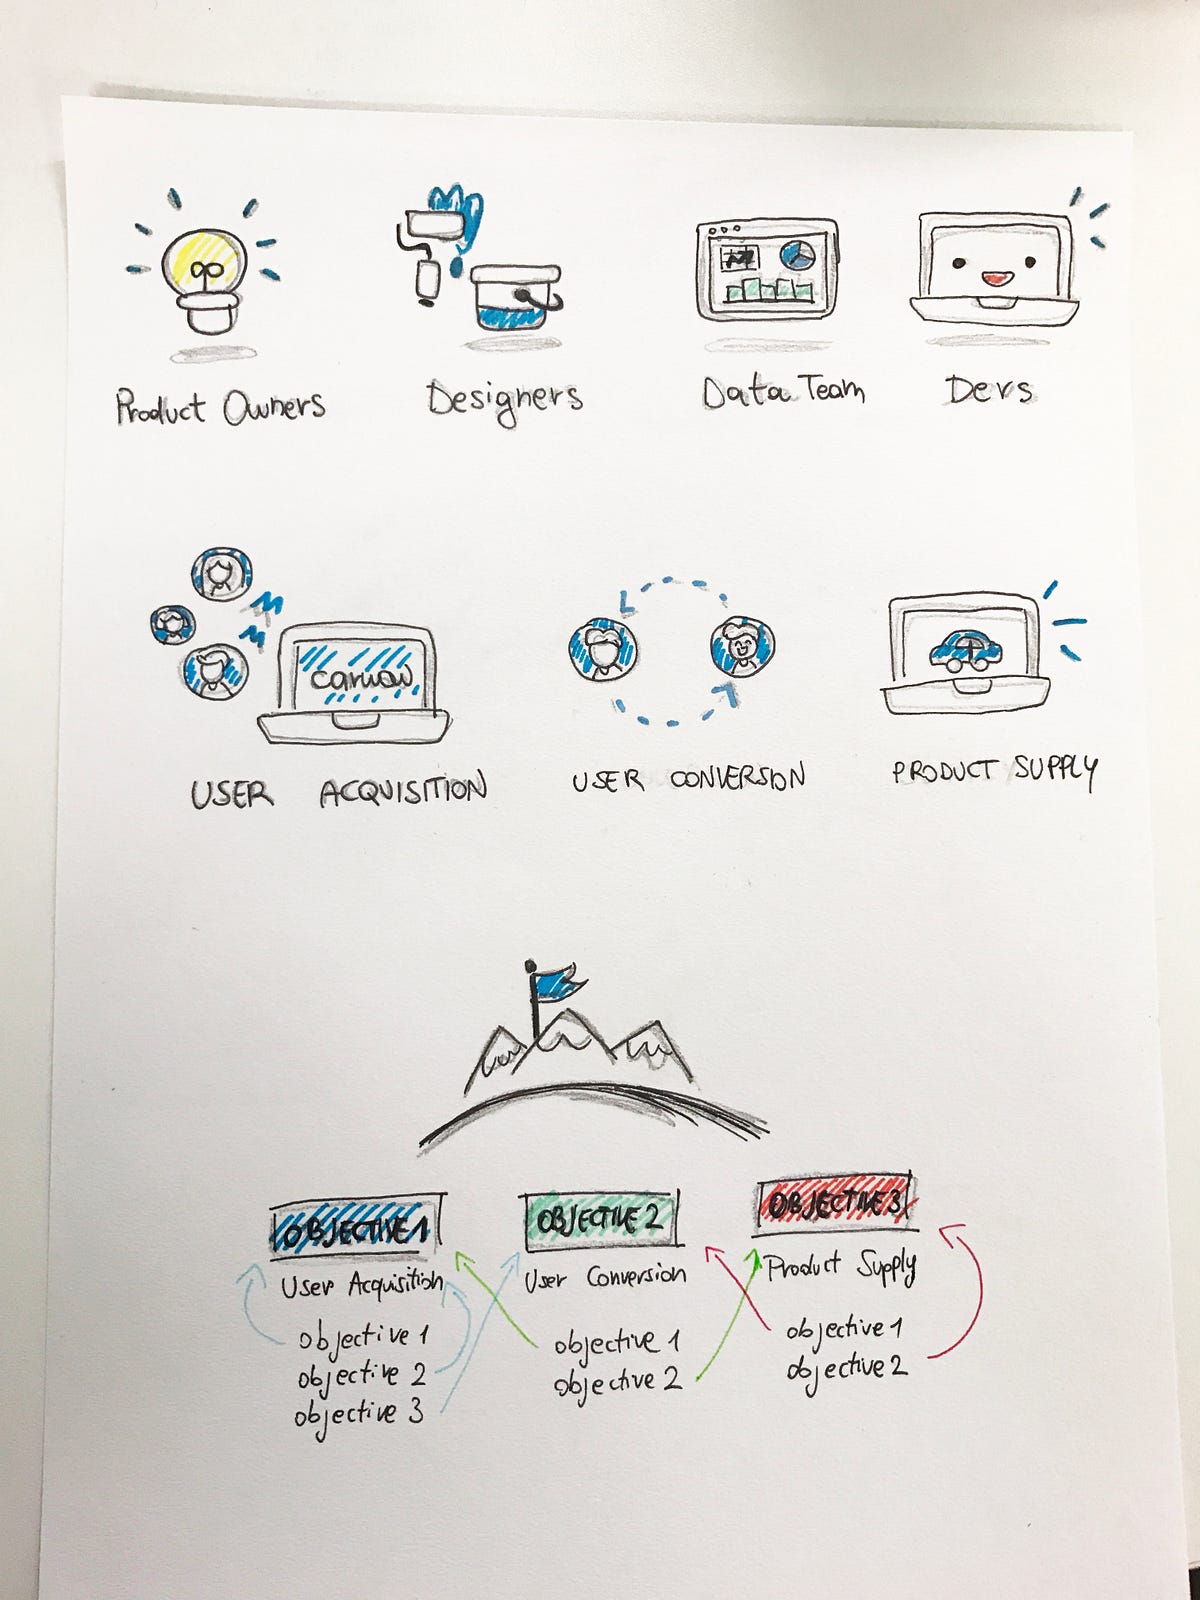 Product Owners
Designers
Data Team
Devs
carwow
USER ACQUISITION
USER CONVERSION
PRODUCT SUPPLY
OBJECTIVE 1
User Acquisition
objective 1
objective 2
objective 3
OBJECTIVE 2
User Conversion
objective 1
objective 2
OBJECTIVE 3
Product Supply
objective 1
objective 2